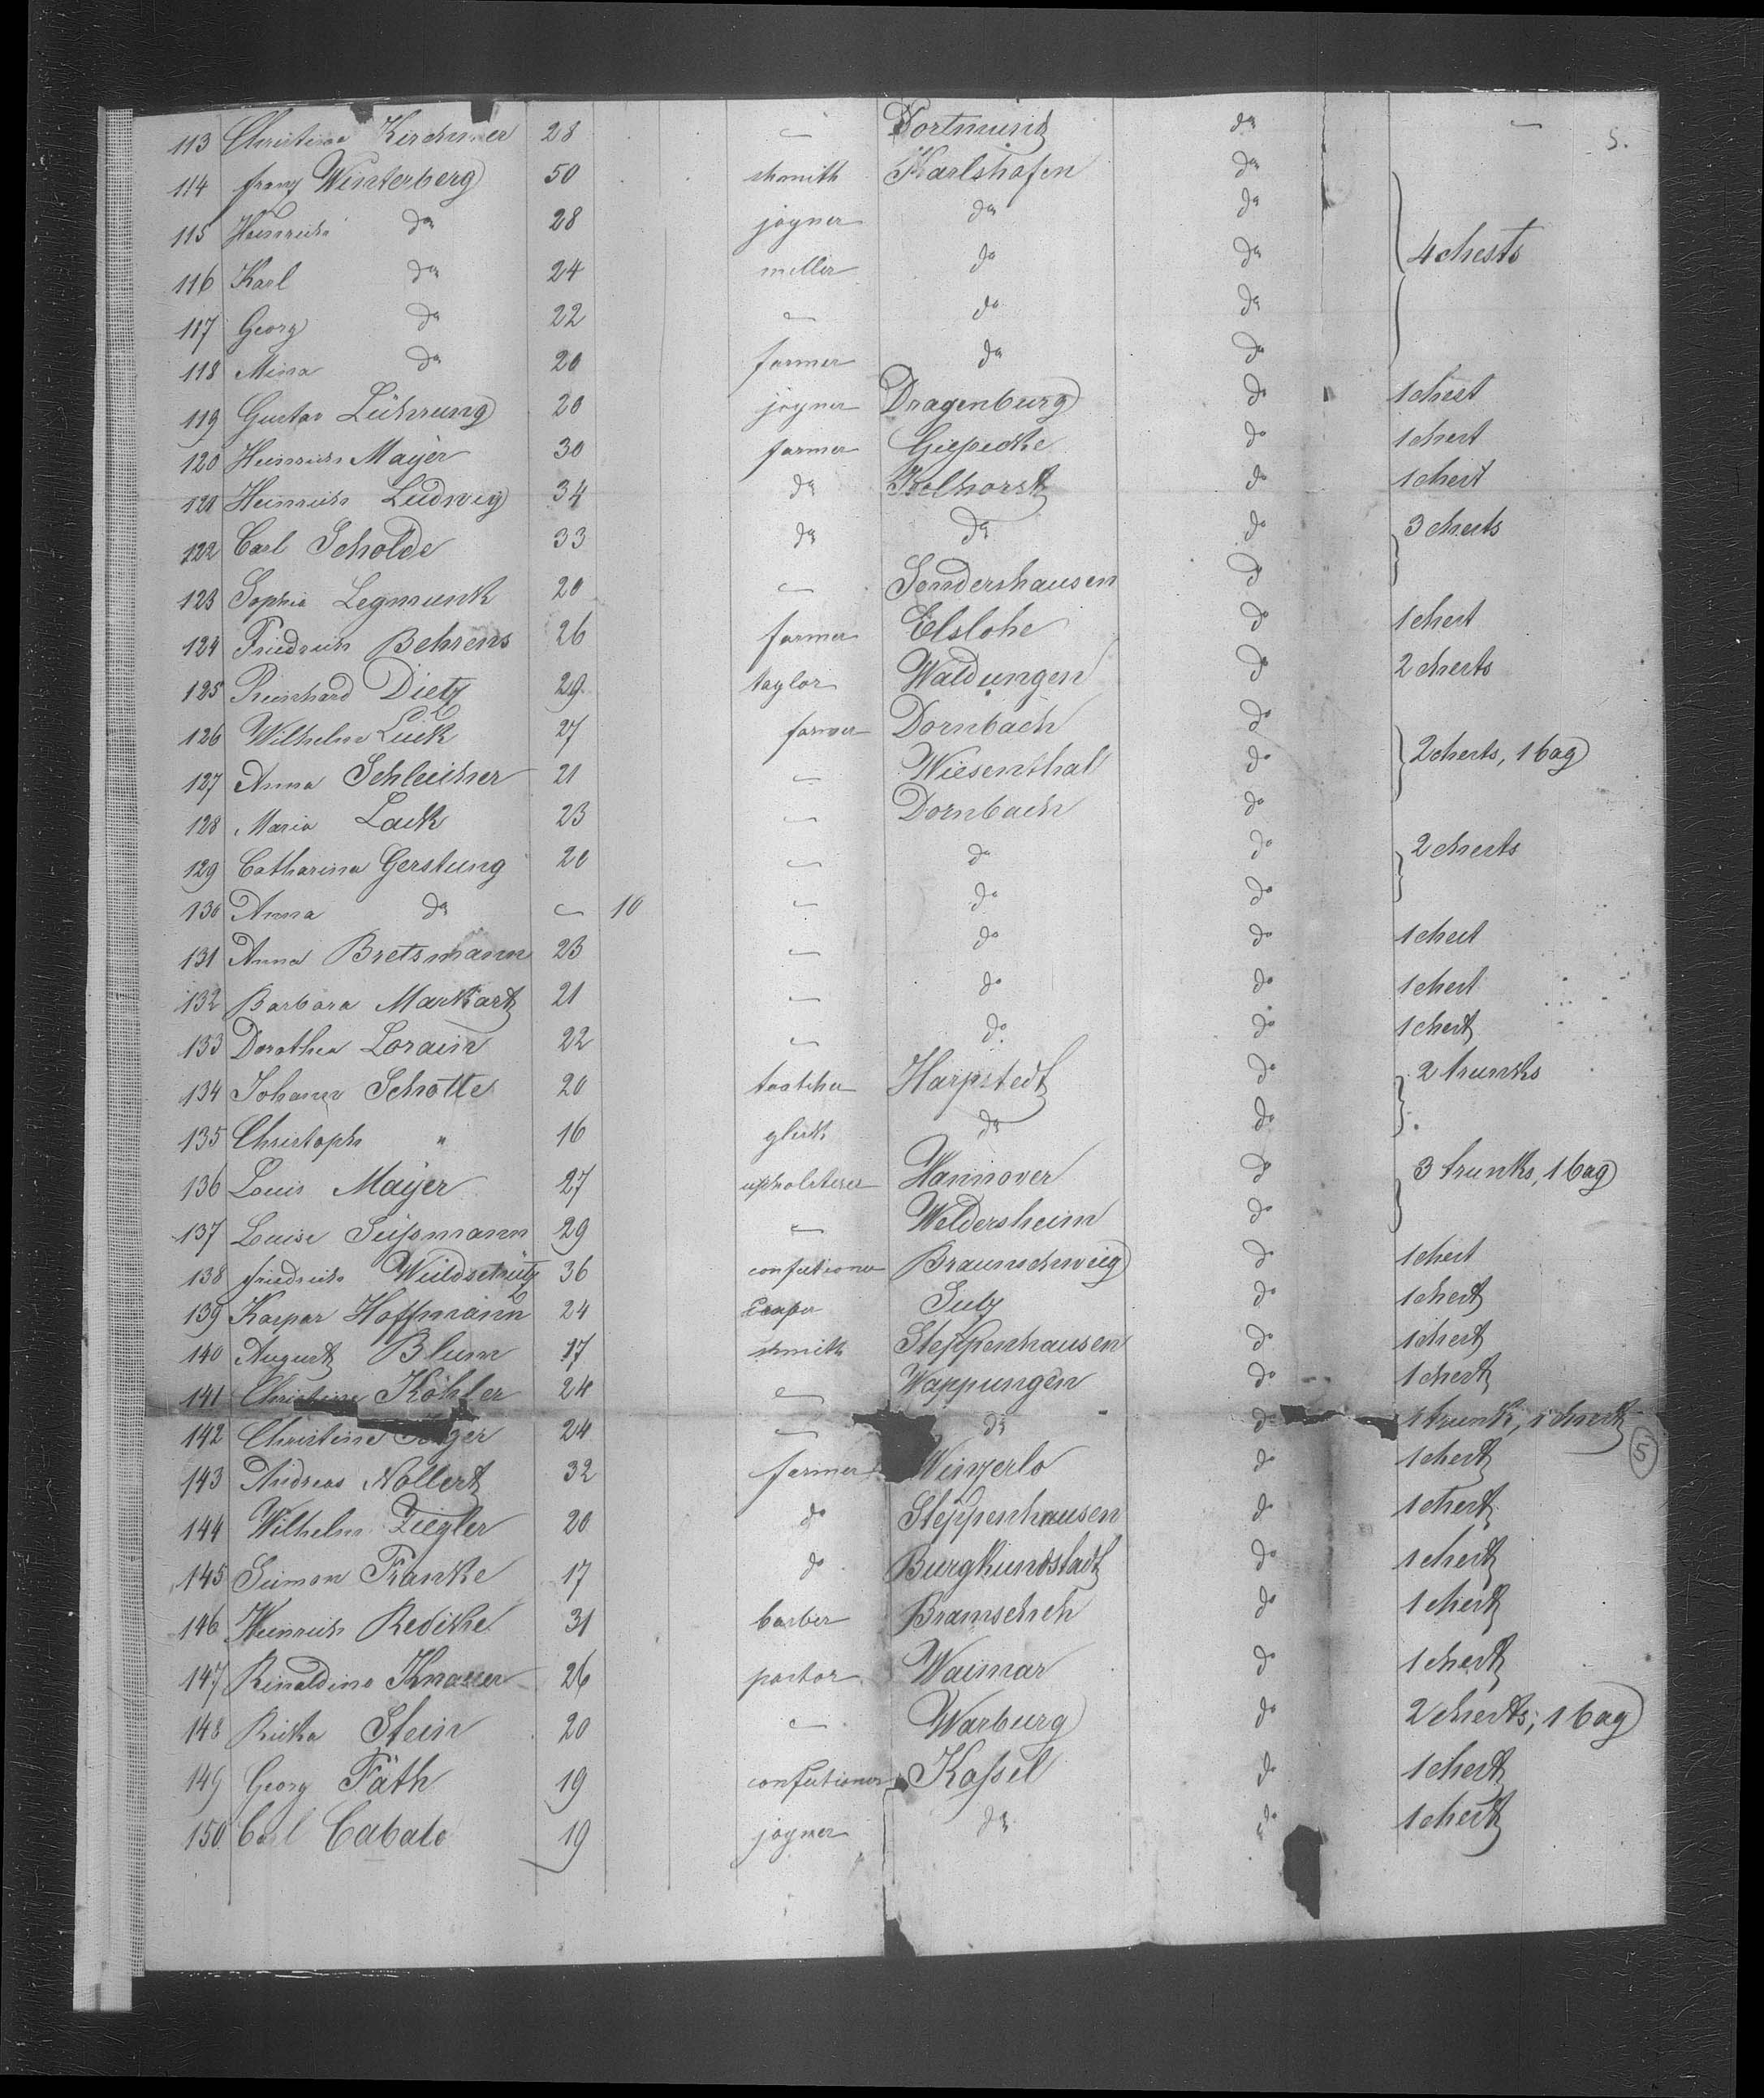 5.
113 Christine Kirchner 28 — Dortmund do —
114 franz Winterberg 50 shmith Karlshafen do
115 Heinrich do 28 joyner do do
116 Karl do 24 miller do do 4 chests
117 Georg do 22 — do do
118 Mina do 20 farmer do do
119 Gustav Lührung 20 joyner Dragenburg do 1 chest
120 Heinrich Mayer 30 farmer Giepecke do 1 chest
121 Heinrich Ludwig 34 do Kolhorst do 1 chest
122 Carl Scholde 33 do do do 3 chests
123 Sophia Legmunk 20 — Sondershausen do
124 Friedrich Behrens 26 farmer Elslohe do 1 chest
125 Reinhard Dietz 29 taylor Waldungen do 2 chests
126 Wilhelm Lück 27 farmer Dornbach do
127 Anna Schleicher 21 — Wiesenthal do 2 chests, 1 bag
128 Maria Lack 23 — Dornbach do
129 Catharina Gerstung 20 — do do 2 chests
130 Anna do — 10 — do do
131 Anna Bretsmann 23 — do do 1 chest
132 Barbara Markart 21 — do do 1 chest
133 Dorothea Lorain 22 — do do 1 chest
134 Johann Schotte 20 Harpstedt do 2 trunks
135 Christoph " 16 do do
136 Louis Mayer 27 upholsterer Hannover do 3 trunks, 1 bag
137 Louise Süssmann 29 — Weldersheim do
138 friedrich Wildschütz 36 confectioner Braunschweig do 1 chest
139 Kaspar Hoffmann 24 Sulz do 1 chest
140 August Blum 17 shmith Steppenhausen do 1 chest
141 Christine Köhler 24 — Wappungen do 1 chest
142 Christine 24 — do do 1 trunk, 1 chest
5
143 Andreas Nollert 32 farmer Winzerlo do 1 chest
144 Wilhelm Ziegler 20 do Steppenhausen do 1 chest
145 Simon Franke 17 do Burgkundstadt do 1 chest
146 Heinrich Redicke 31 barber Bramsche do 1 chest
147 Rinaldino Knauer 26 pastor Waimar do 1 chest
148 Ricka Stein 20 — Warburg do 2 chests, 1 bag
149 Georg Fäth 19 confectioner Kassel do 1 chest
150 Carl Cabalo 19 joyner do do 1 chest